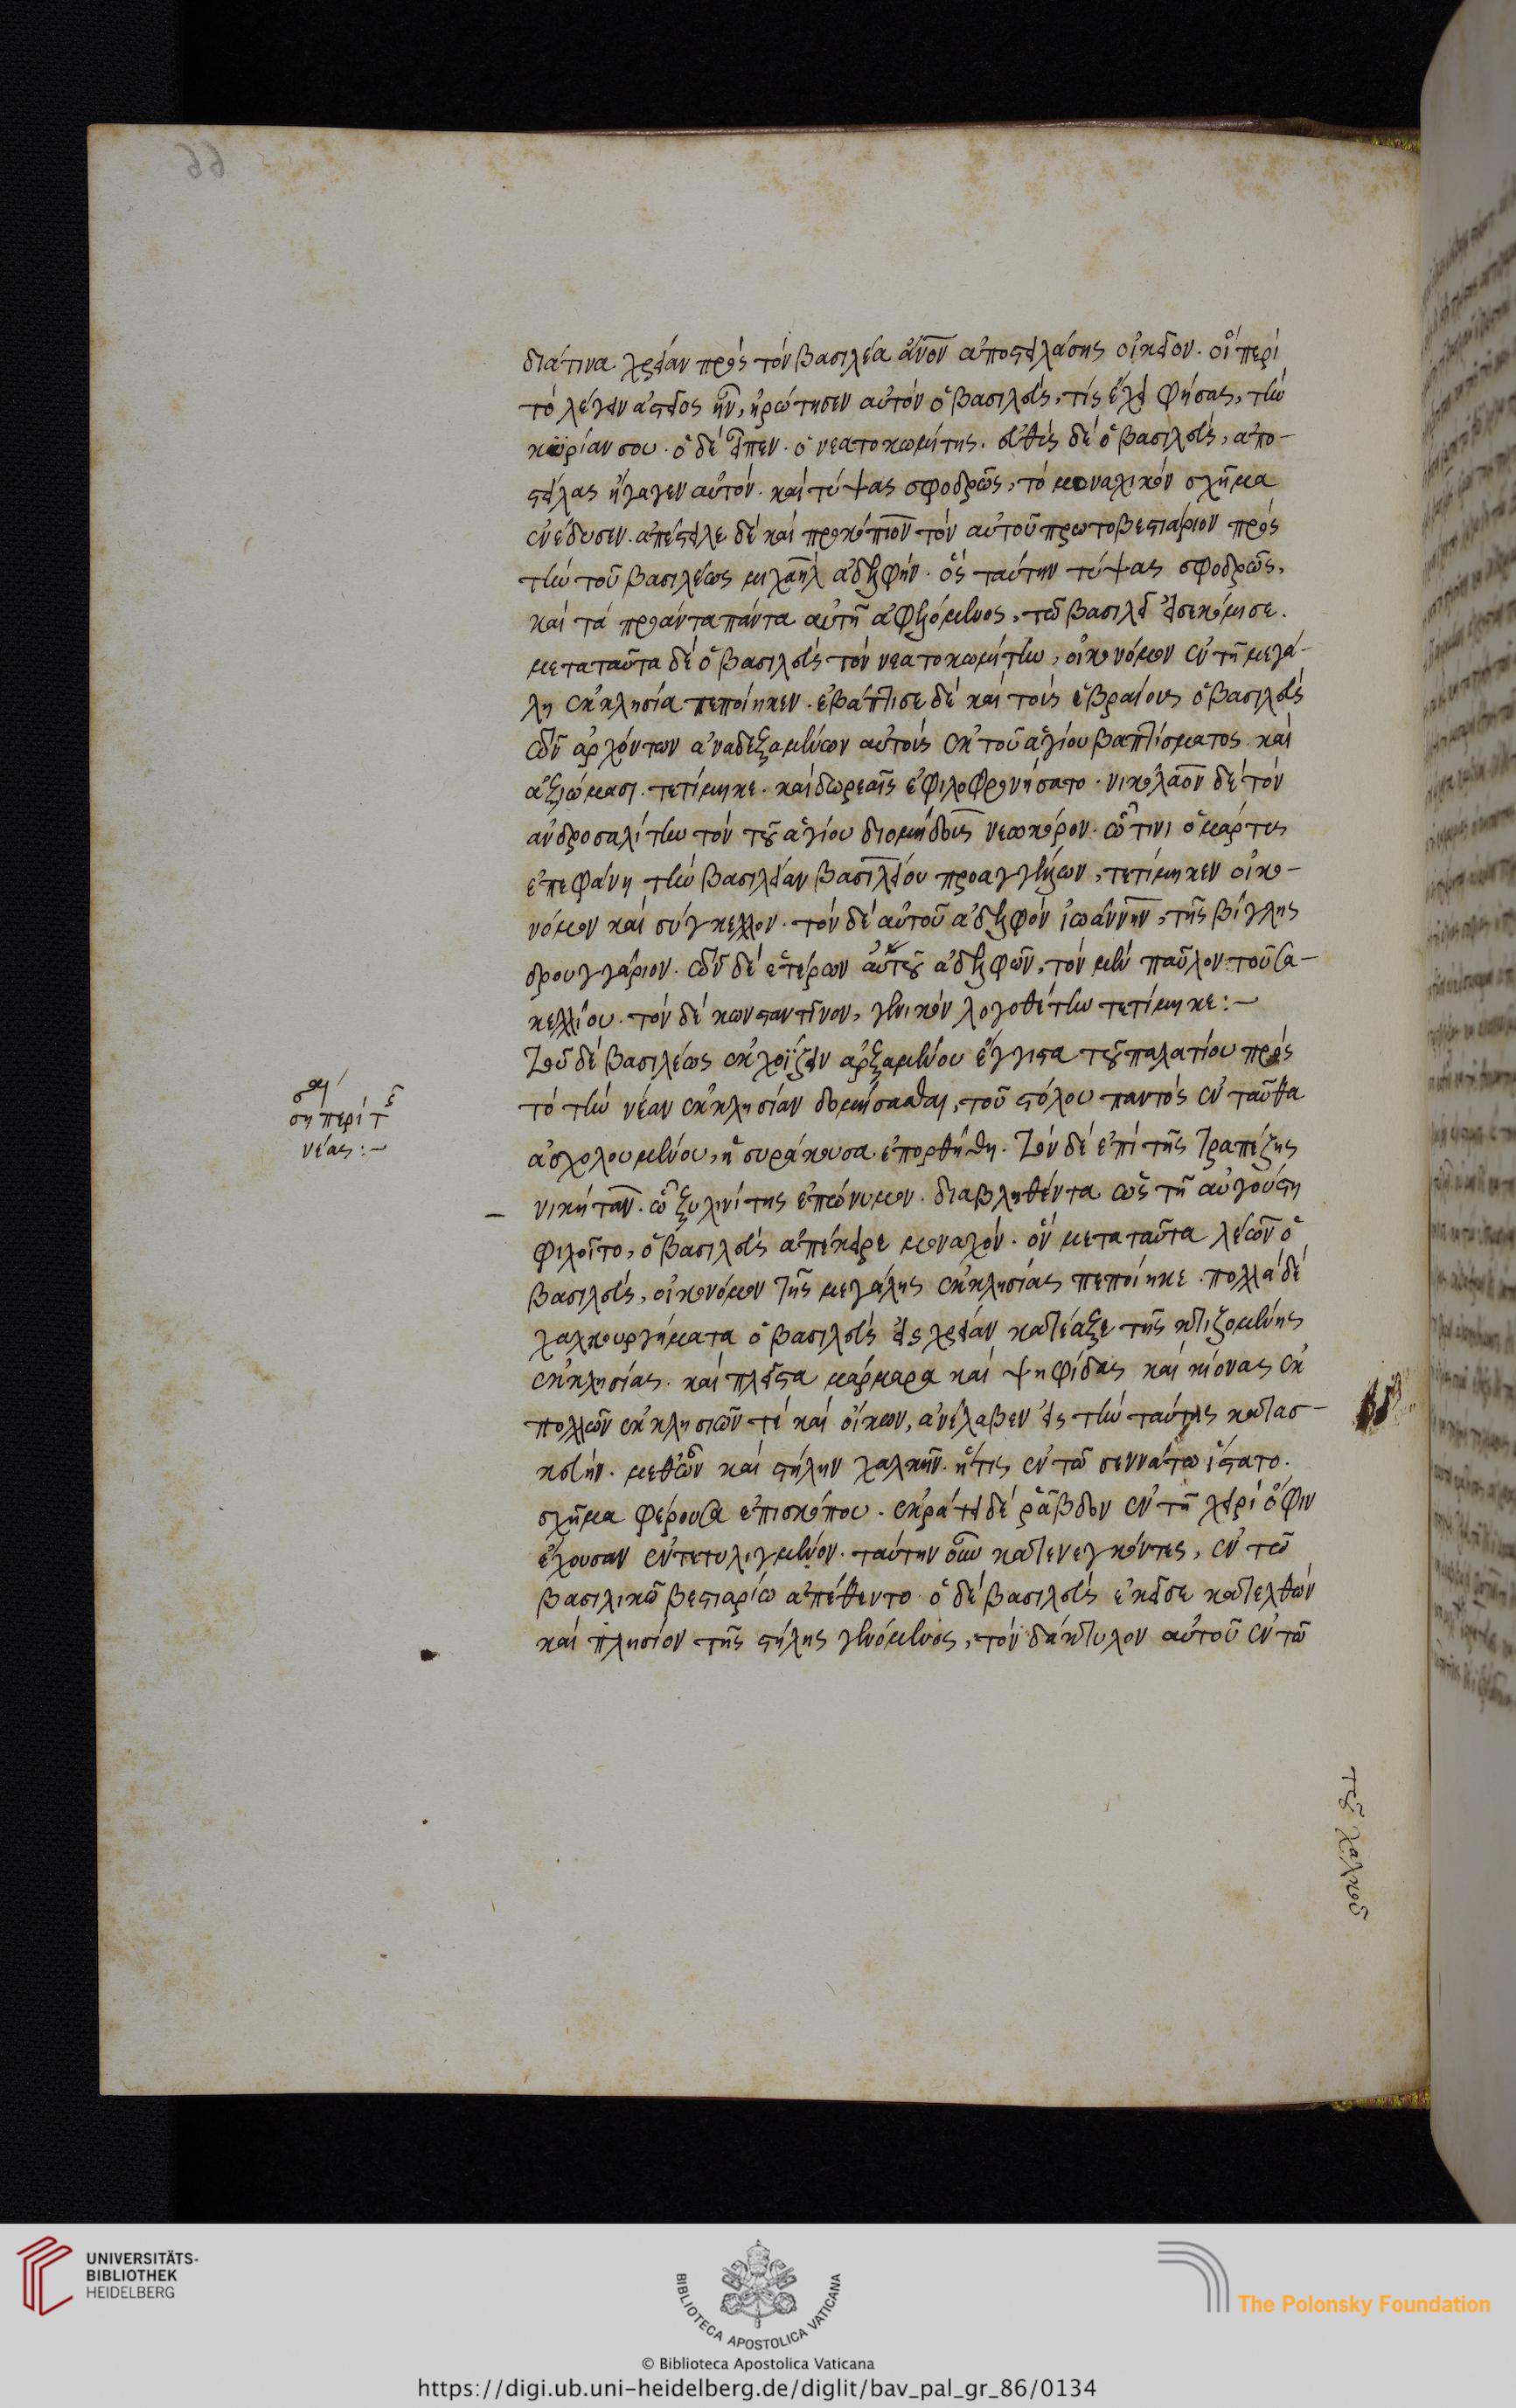 διάτινα χρείαν πρὸς τὸν βασιλέα ἄνον ἀποστειλάσης οἰκεῖον. οἱ περὶ
τὸ λέγειν ἀστεῖος ἦν, ἠρώτησεν αὐτὸν ὁ βασιλεὺς, τίς ἔχει φήσας, τὴν
κυρίαν σου. ὁ δὲ εἶπεν. ὁ νεατοκωμήτης. εὐθὺς δὲ ὁ βασιλεὺς, ἀπο-
στείλας ἤγαγεν αὐτόν. καὶ τύψας σφοδρῶς, τὸ μοναχικὸν σχῆμα
ἐνέδυσεν. ἀπέστειλε δὲ καὶ προκόπιον τὸν αὐτοῦ πρωτοβεστιάριον πρὸς
τὴν τοῦ βασιλέως μιχαὴλ ἀδελφήν. ὃς ταύτην τύψας σφοδρῶς,
καὶ τὰ προσόντα πάντα αὐτῆ ἀφελόμενος, τῶ βασιλεῖ εἰσεκόμισε.
μεταταῦτα δὲ ὁ βασιλεὺς τὸν νεατοκωμήτην, οἰκονόμον ἐν τῆ μεγά-
λη ἐκκλησία πεποίηκεν. ἐβάπτισε δὲ καὶ τοὺς ἑβραίους ὁ βασιλεὺς
τῶν ἀρχόντων ἀναδεξαμένων αὐτοὺς ἐκ τοῦ ἁγίου βαπτίσματος. καὶ
ἀξιώμασι τετίμηκε. καὶ δωρεαῖς ἐφιλοφρονήσατο. νικόλαον δὲ τὸν
ἀνδροσαλίτην τὸν τοῦ ἁγίου διομήδους νεωκόρον. ὧτινι ὁ μάρτυς
ἐπεφάνη τὴν βασιλείαν βασιλείου προαγγέλλων, τετίμηκεν οἰκο-
νόμον καὶ σύγκελλον. τὸν δὲ αὐτοῦ ἀδελφὸν ἰωάννην, τῆς βίγλης
δρουγγάριον. τῶν δὲ ἑτέρων αὐτοῦ ἀδελφῶν, τὸν μὲν παῦλον τοῦ σα-
κελλίου. τὸν δὲ κωνσταντῖνον, γενικὸν λογοθέτην τετίμηκε:-
Τοῦ δὲ βασιλέως ἐκχοΐζειν ἀρξαμένου ἔγγιστα τοῦ παλατίου πρὸς
τὸ τὴν νέαν ἐκκλησίαν δομήσασθαι, τοῦ στόλου παντὸς ἐν ταῦθα
ἀσχολουμένου, ἡ συράκουσα ἐπορθήθη. Τὸν δὲ ἐπὶ τῆς τραπέζης
νικήταν. ὧ ξυλινίτης ἐπώνυμον. διαβληθέντα ὡς τῆ αὐγούστη
φιλοῖτο, ὁ βασιλεὺς ἀπέκειρε μοναχόν. ὃν μεταταῦτα λέων ὁ
βασιλεὺς, οἰκονόμον τῆς μεγάλης ἐκκλησίας πεποίηκε. πολλὰ δὲ
χαλκουργήματα ὁ βασιλεὺς εἰς χρείαν κατέαξε τῆς κτιζομένης
ἐκκλησίας. καὶ πλεῖστα μάρμαρα καὶ ψηφίδας καὶ κίονας ἐκ
πολλῶν ἐκκλησιῶν τὲ καὶ οἴκων, ἀνέλαβεν εἰς τὴν ταύτης κατασ-
κευήν. μεθ' ὧν καὶ στήλην χαλκῆν. ἥτις ἐν τῶ σεννάτω ἵστατο.
σχῆμα φέρουσα ἐπισκόπου. ἐκράτει δὲ ῥάβδον ἐν τῆ χειρὶ ὄφιν
ἔχουσαν ἐντετυλιγμένον. ταύτην οὖν κατενεγκόντες, ἐν τῶ
βασιλικῶ βεστιαρίω ἀπέθεντο. ὁ δὲ βασιλεὺς ἐκεῖσε κατελθὼν
καὶ πλησίον τῆς στήλης γενόμενος, τὸν δάκτυλον αὐτοῦ ἐν τῶ
ση περὶ τῆς
νέας:-
τοῦ χαλκοῦ
66
UNIVERSITÄTS-
BIBLIOTHEK
HEIDELBERG
BIBLIOTECA APOSTOLICA VATICANA
The Polonsky Foundation
© Biblioteca Apostolica Vaticana
https://digi.ub.uni-heidelberg.de/diglit/bav_pal_gr_86/0134